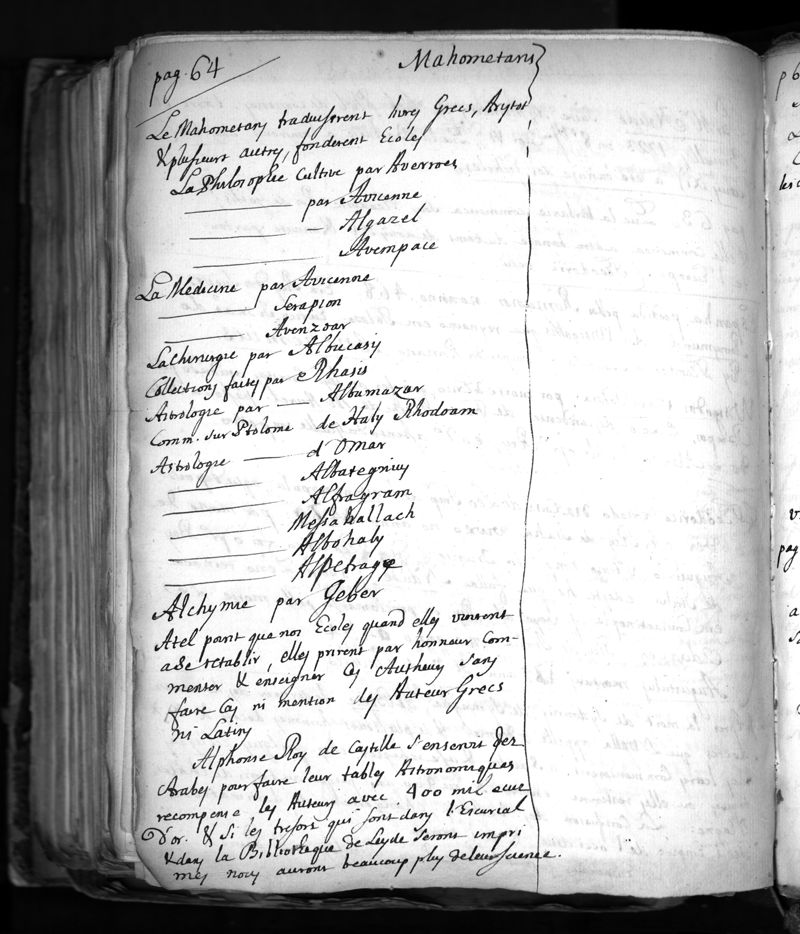 pag. 64
Mahometans
Le Mahometans traduisirent livres Grecs, Arystot
& plusieurs autres, fonderent Ecoles
La Philosophie Cultive par Averroes
par Avicenne
Algazel
Avempace
La Medecine par Avicenne
Serapion
Avenzoar
La Chirurgie par Albucasis
Collections faites par Rhasis
Astrologie par Albumazar
Comm. sur Ptolome de Haly Rhodoam
Astrologie d'Omar
Albategnius
Alfragram
Messahallach
Albohaly
Alpetrage
Alchymie par Geber
A tel point que nos Ecoles quand elles vinrent
a se retablir, elles prirent par honneur Com-
menter & enseigner Ces Autheurs sans
faire Cas ni mention des Auteur Grecs
ni Latins
Alphonse Roy de Castille s'enservit des
Arabes pour faire leur tables Astronomiques
recompense les Auteurs avec 400 mil ecus
D'or. & Si les tresors qui sont dans l'Escurial
& dans la Bibliotheque de Leyde serons impri
mes nous aurons beaucoup plus de leur science.